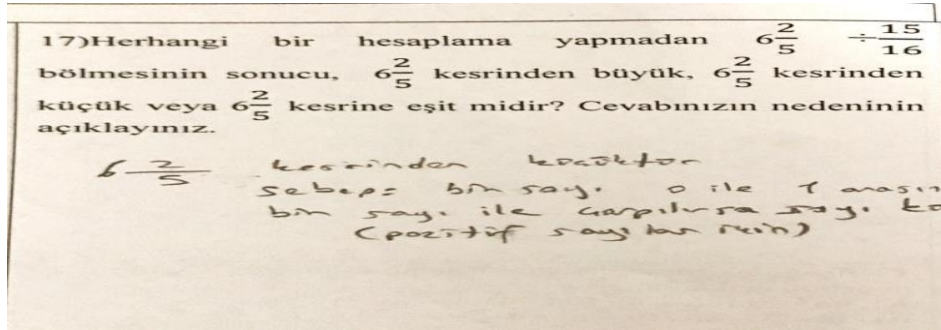 17)Herhangi bir hesaplama yapmadan 6 2/5 ÷ 15/16
bölmesinin sonucu, 6 2/5 kesrinden büyük, 6 2/5 kesrinden
küçük veya 6 2/5 kesrine eşit midir? Cevabınızın nedeninin
açıklayınız.
6 2/5 kesrinden küçüktür
sebep= bir sayı 0 ile 1 arasın
bir sayı ile çarpılırsa sayı
(pozitif sayılar için)